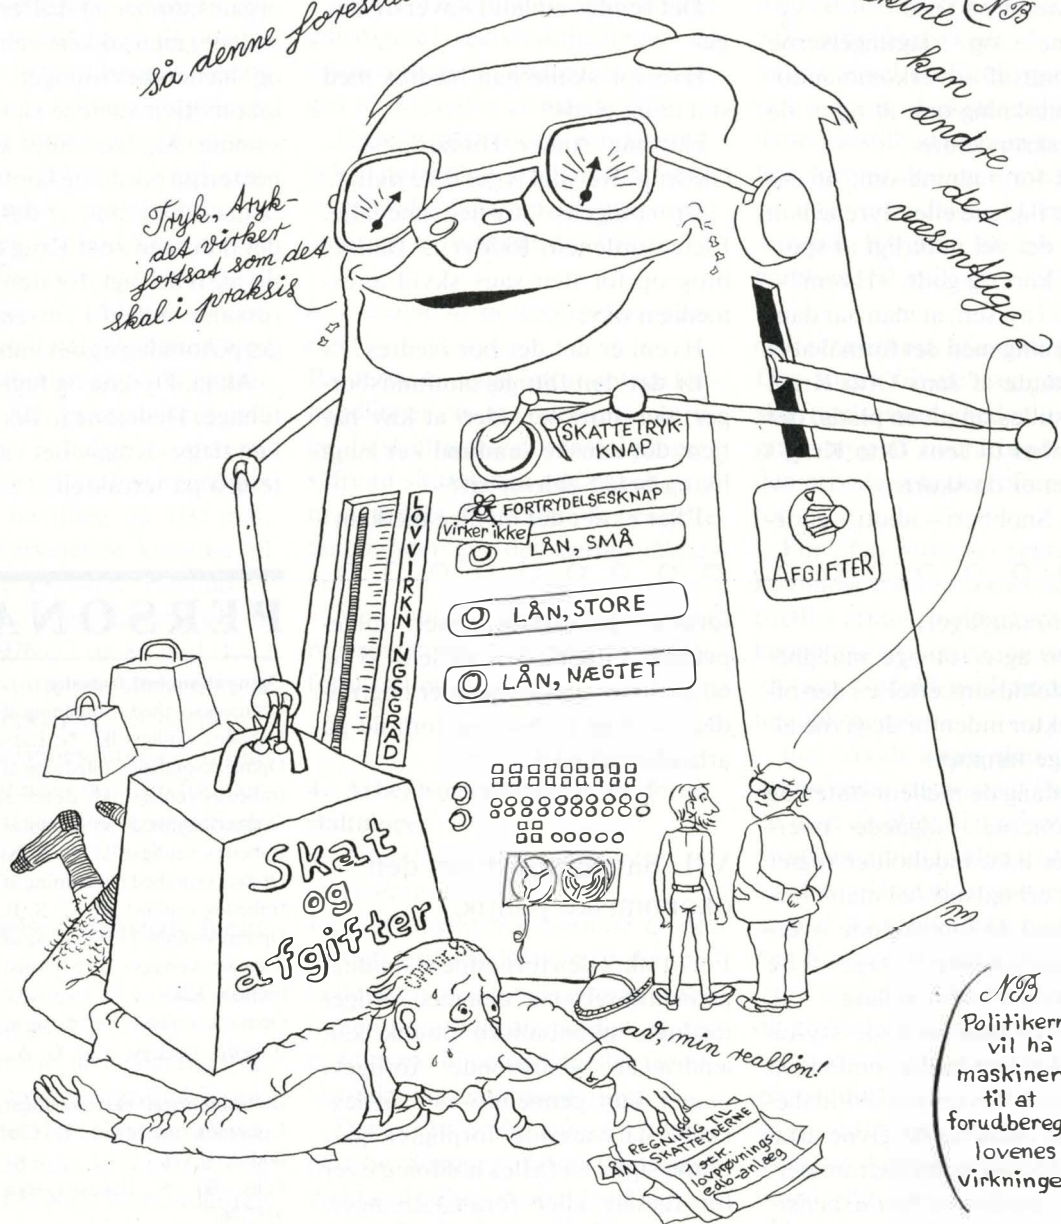 så denne
kan
andre
des
væsentlige
NB
Tryk, tryk-
det virker
fortsat som det
skal i praksis
SKATTETRYK-
KNAP
FORTRYDELSESKNAP
Virker ikke
LÅN, SMÅ
LÅN, STORE
LÅN, NÆGTET
LOVVIRKNINGSGRAD
AFGIFTER
Skat
og
afgifter
av, min reallön!
REGNING TIL
SKATTEYDERNE
1 stk.
edb-anlæg
LÅN
NB
Politikern
vil ha
maskiner
til at
forudbereg
lovenes
virkninge
PERSONA